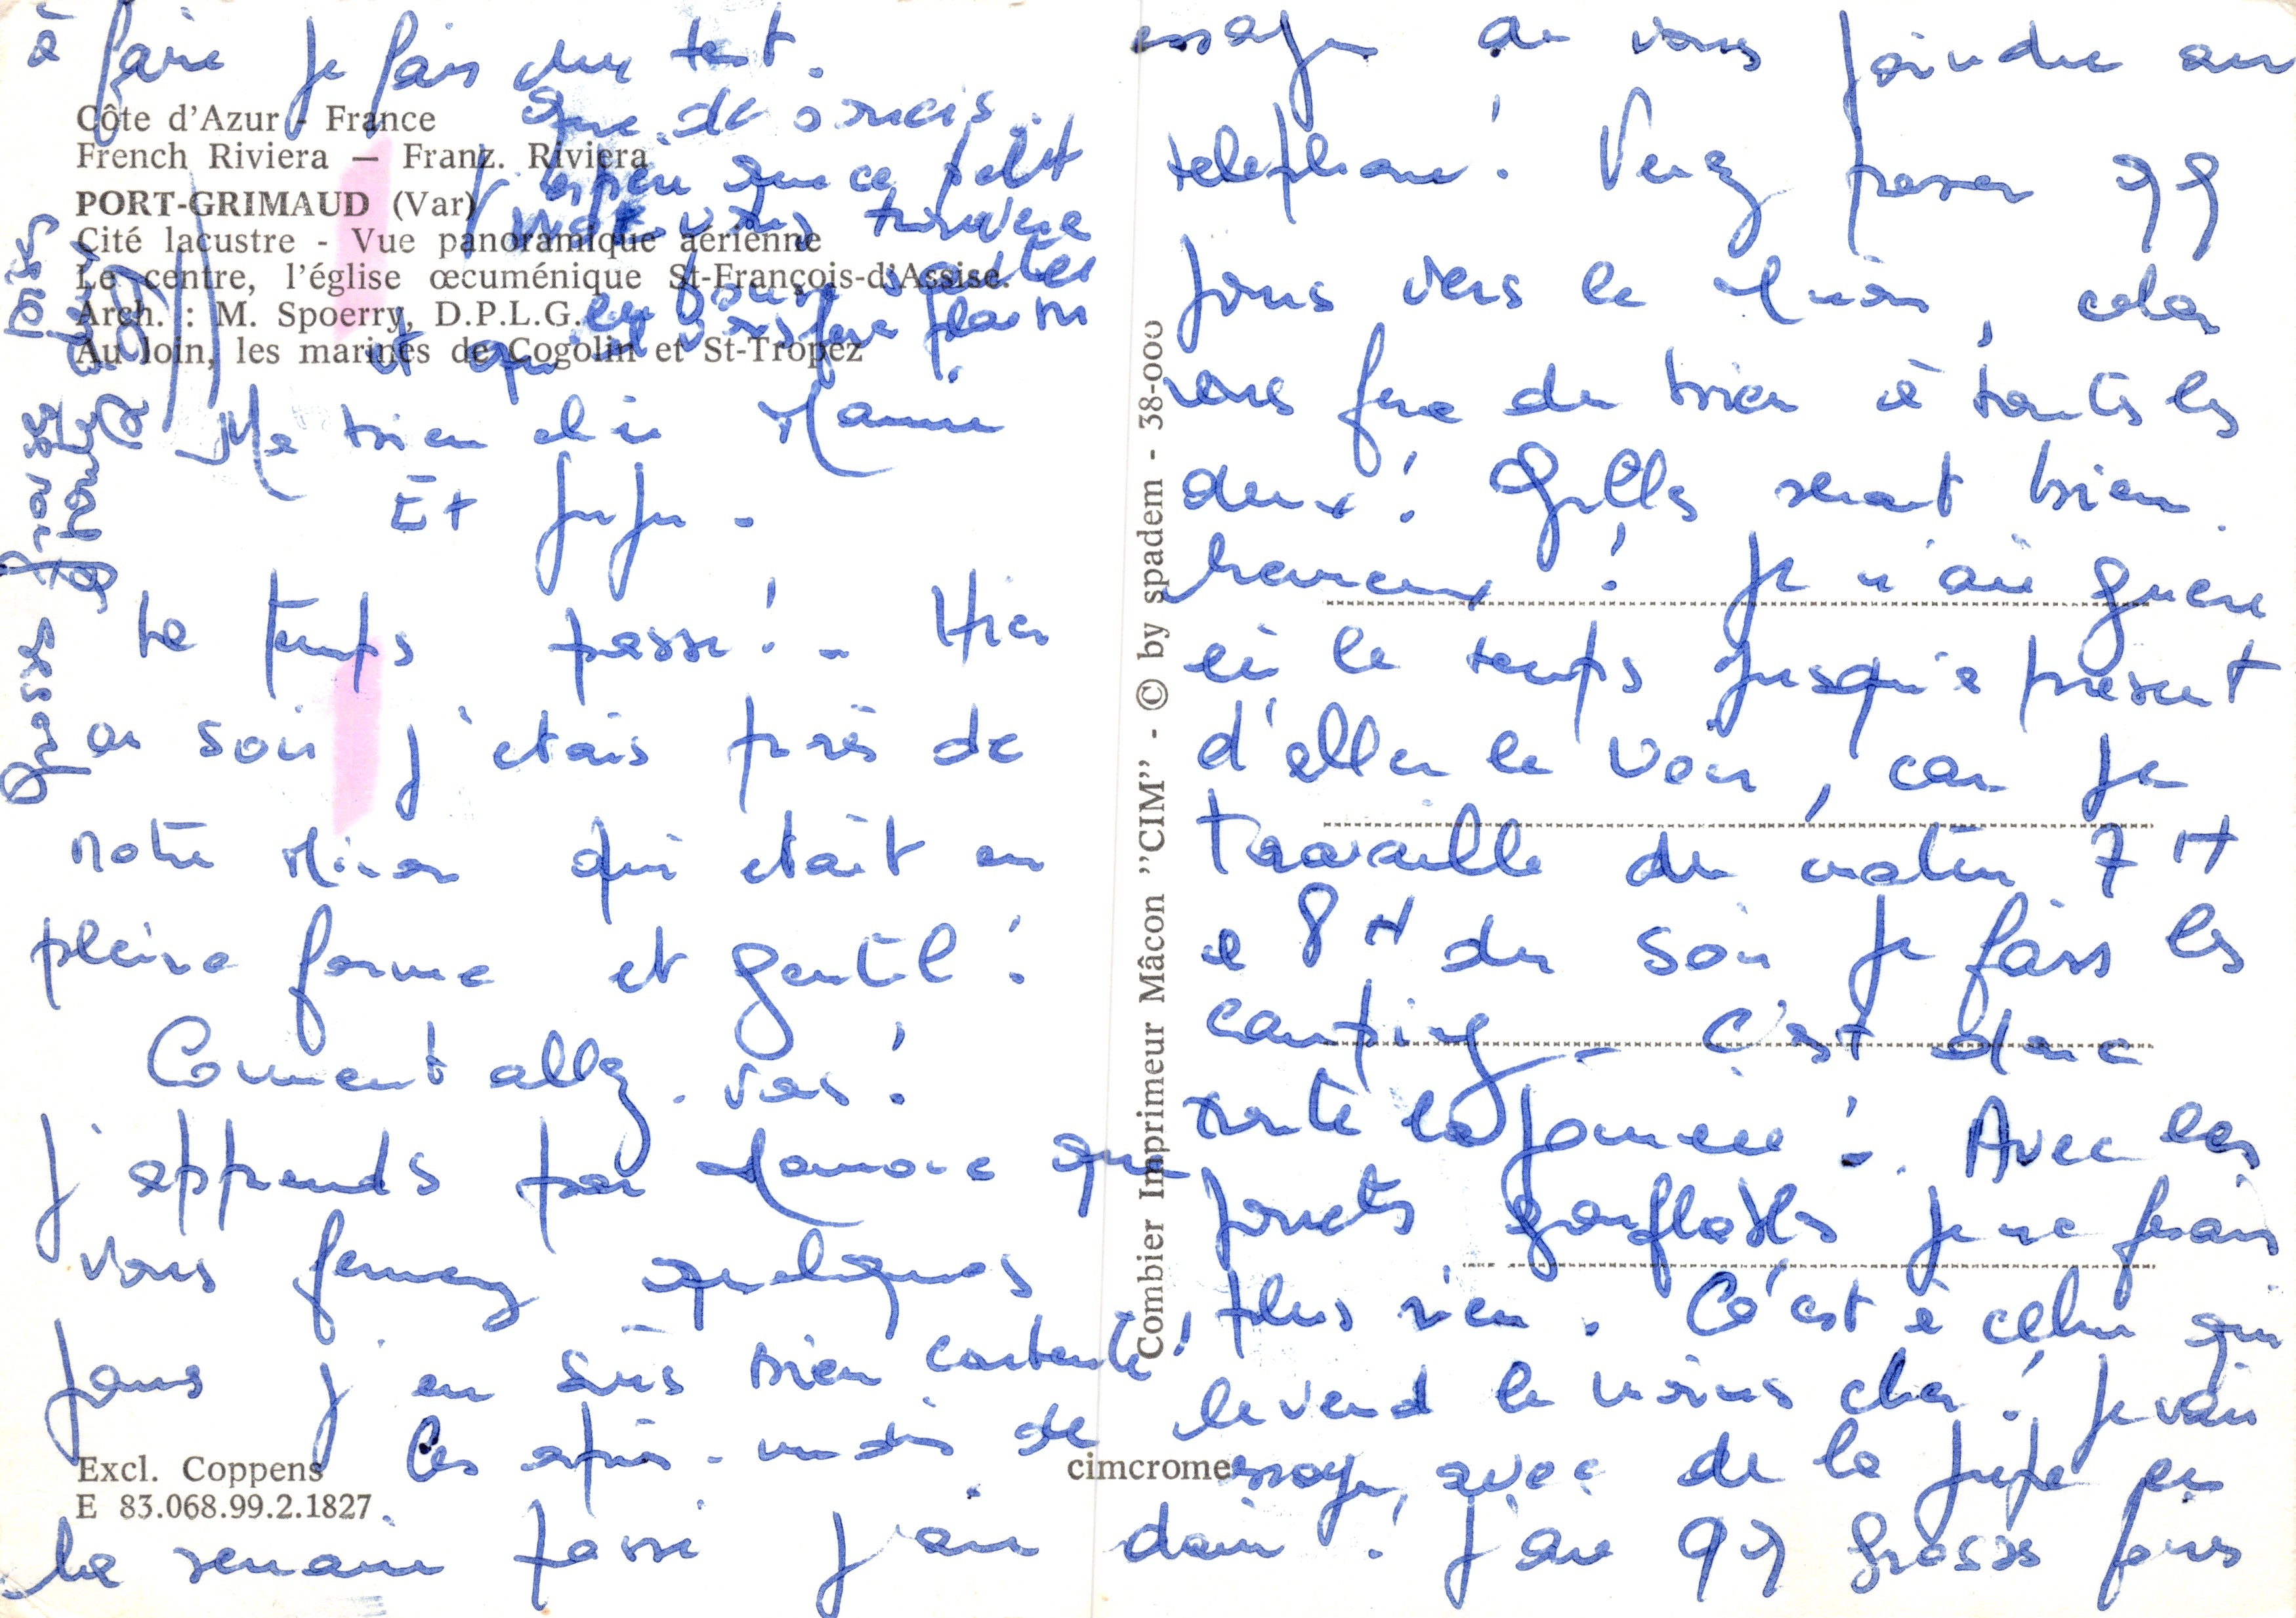 à faire je fais du tout.
Que de soucis.
J'espère que ce petit
mot vous trouvera
en bonne santé
et qu'il vous fera plaisir
Côte d'Azur - France
French Riviera — Franz. Riviera
PORT-GRIMAUD (Var)
Cité lacustre - Vue panoramique aérienne
Le centre, l'église œcuménique St-François-d'Assise.
Arch. : M. Spoerry, D.P.L.G.
Au loin, les marines de Cogolin et St-Tropez
Ma bien chère
Et Juju -
Le temps passe ! - Hier
au soir j'étais près de
notre qui était en
pleine forme et gentil !
Comment allez-vous !
J'apprends par que
vous fermez quelques
jours j'en suis bien contente !
Les après-midis de
la semaine passé j'ai
Excl. Coppens
E 83.068.99.2.1827
cimcrome
Combier Imprimeur Mâcon "CIM" - © by spadem - 38-000
essayé de vous joindre au
telephone ! Venez passer qq
jours vers le , cela
vous fera du bien à toutes les
deux ! Gilles serait bien
heureux ! Je n'ai guère
eu le temps jusqu'à présent
d'aller le voir, car je
travaille du matin 7 H
à 8 H du soir je fais les
camping - C'est donc
toute la journée ! Avec les
jouets gonflables je ne fesais
plus rien. C'est à celui qui
le vend le moins cher ! Je vais
essayer avec de la jupe en
daim ! J'ai qq grosses
Grosses bises